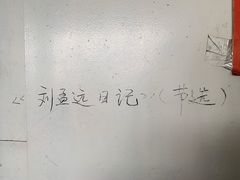 《刘孟远日记》（节选）